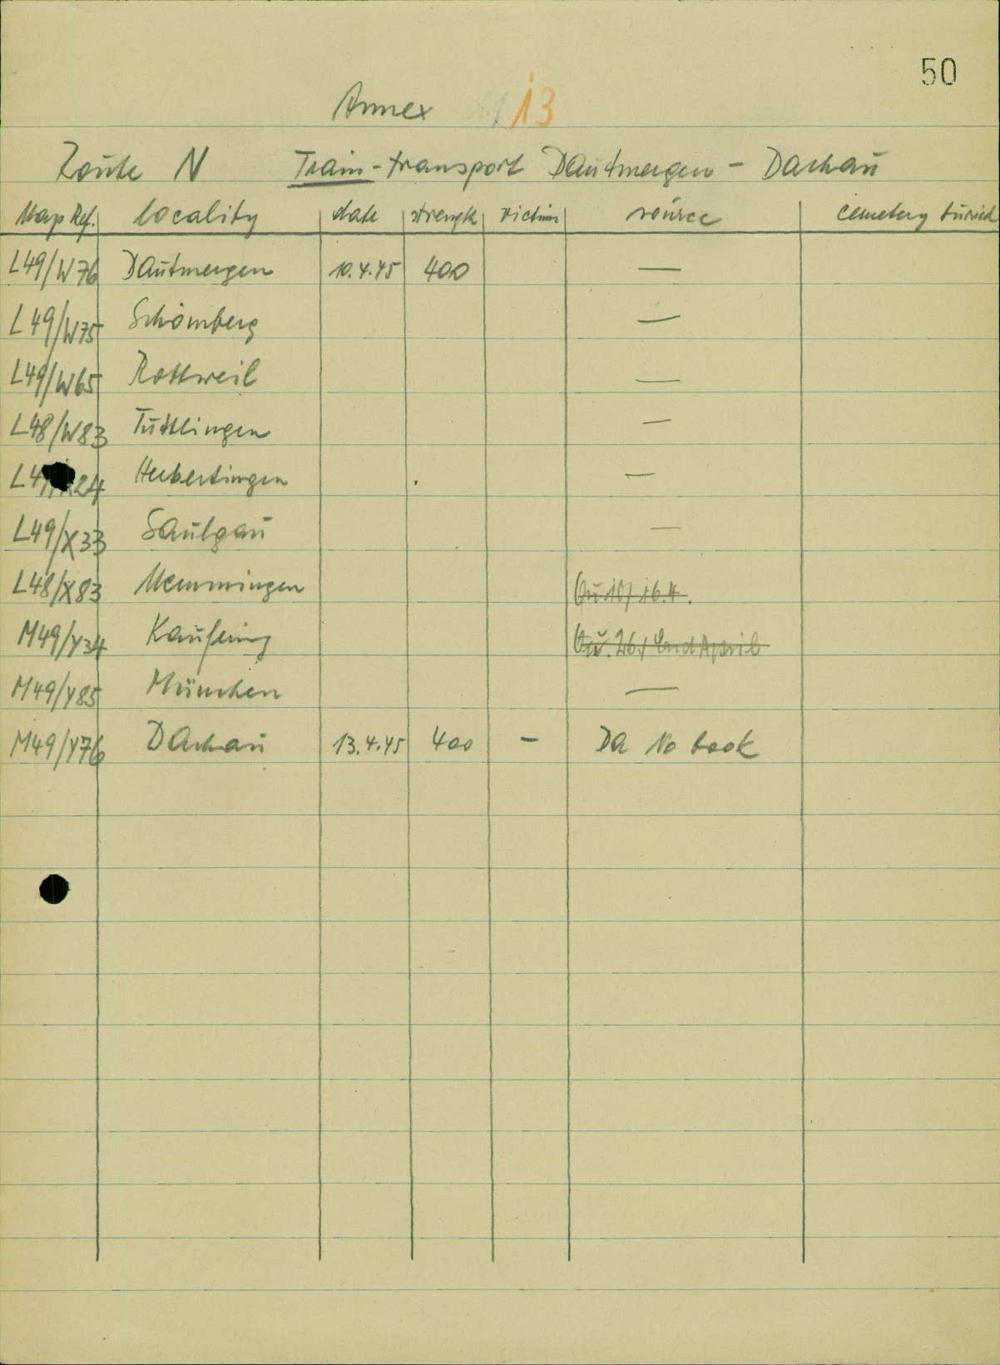 50
Annex 13
Route N Train-transport Dautmergen - Dachau
Map Ref. locality date strength victims source cemetery buried
L49/W76 Dautmergen 10.4.45 400 —
L49/W75 Schömberg —
L49/W65 Rottweil —
L48/W83 Tuttlingen —
Herbertingen —
L49/X33 Saulgau —
L48/X83 Memmingen Qu 10/ 16.4.
M49/Y34 Kaufering Qu. 26/ End April
M49/Y85 München —
M49/Y76 Dachau 13.4.45 400 — Da No book